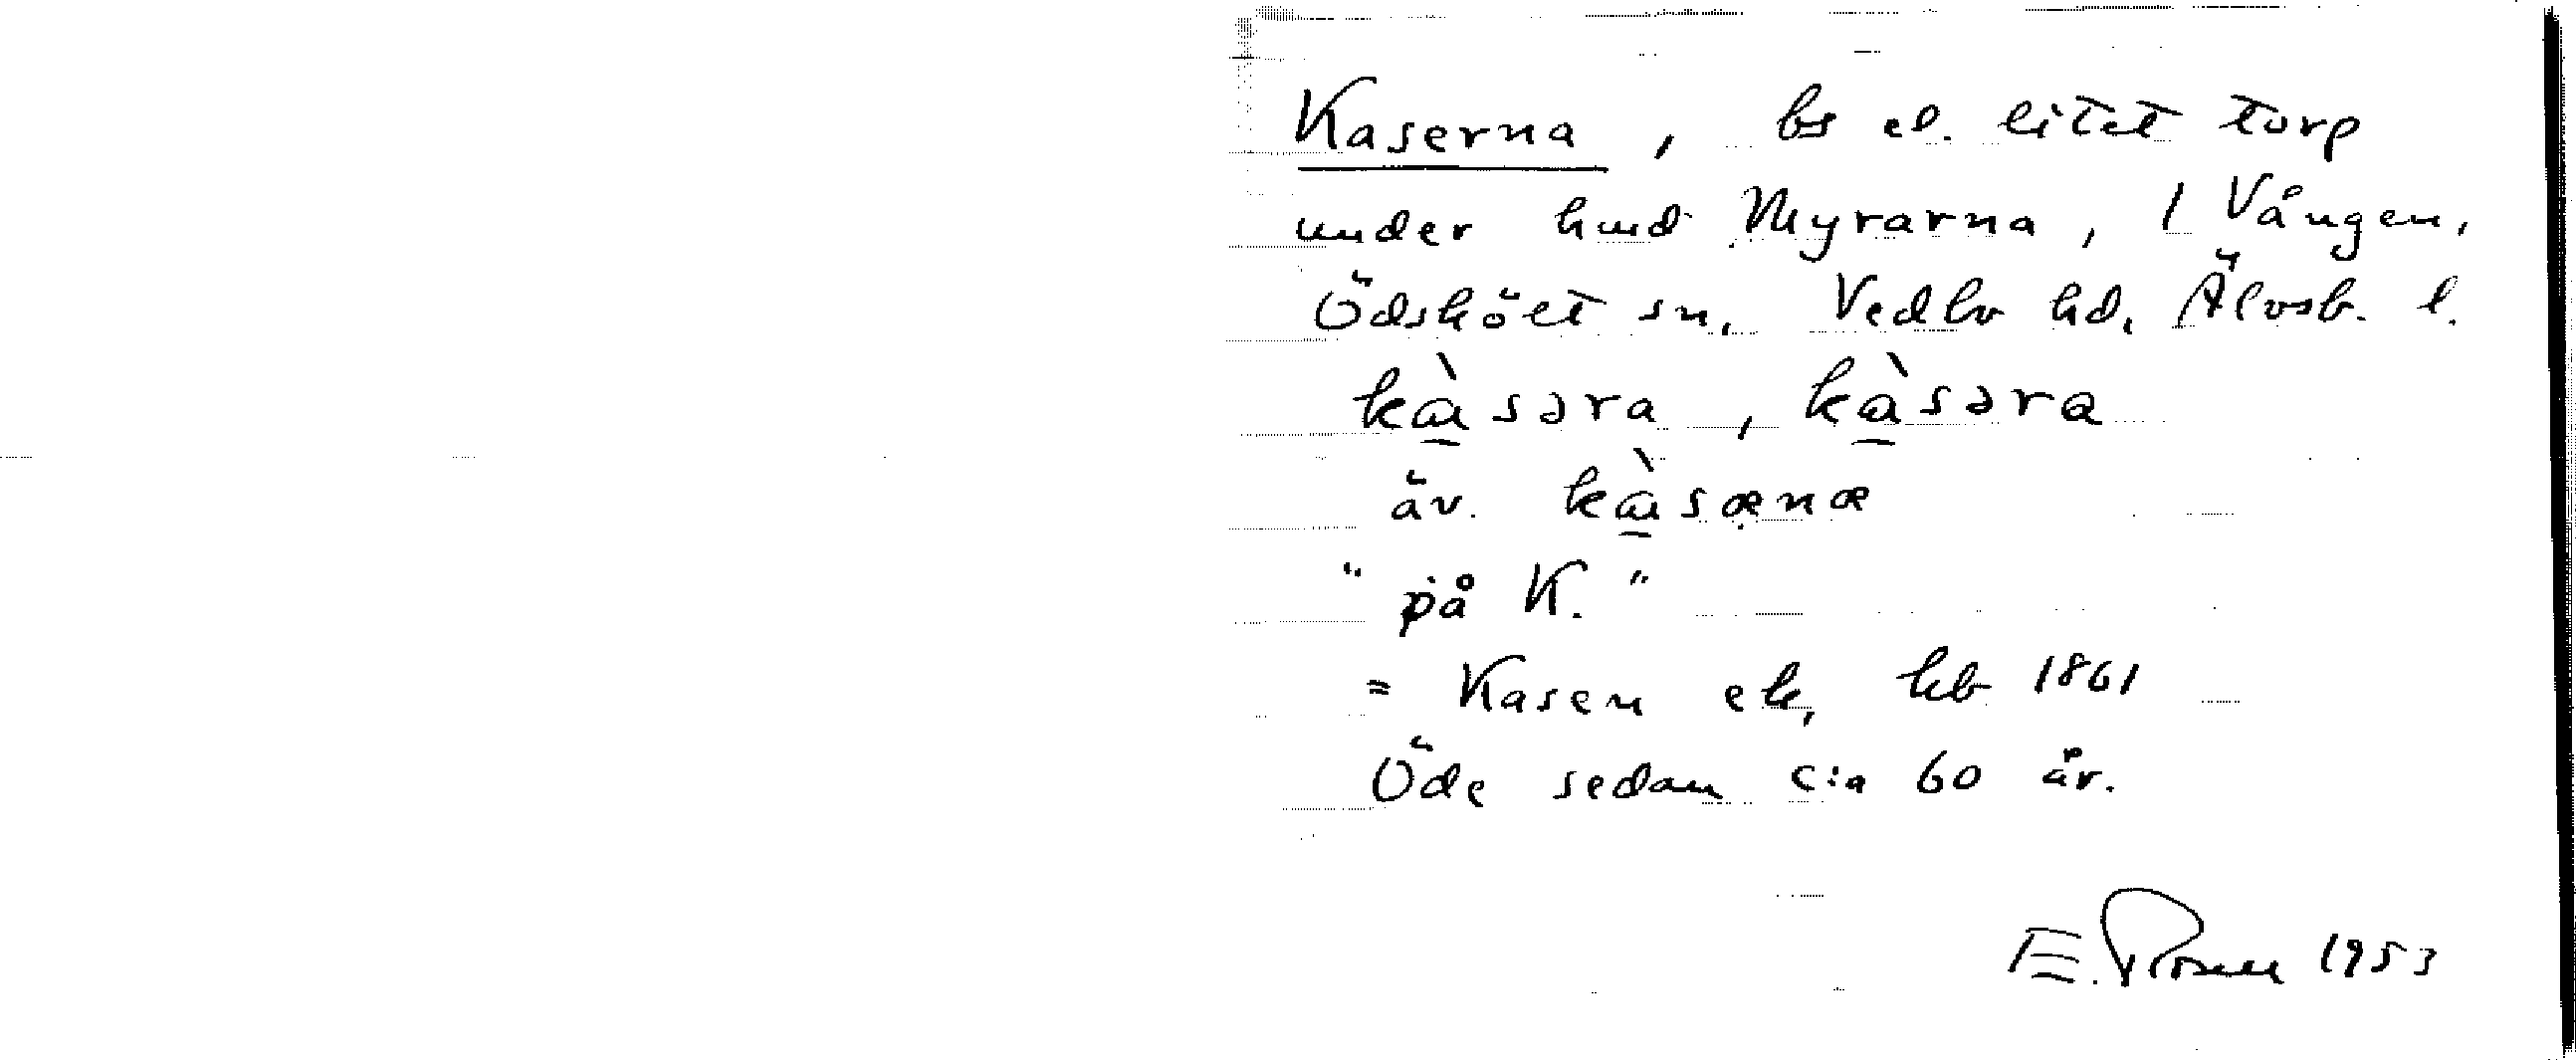 Kaserna, bs el. litet torp
under hmd Myrarna, 1 Vången,
ÖdsköLt sn, Vedbo hd, Älvsb. l.
kɑ̀səra, kɑ̀səra
äv. kɑ̀sænæ
"på K."
= Kasen ek, kb 1861
Öde sedan c:a 60 år.
E. Rosell 1953